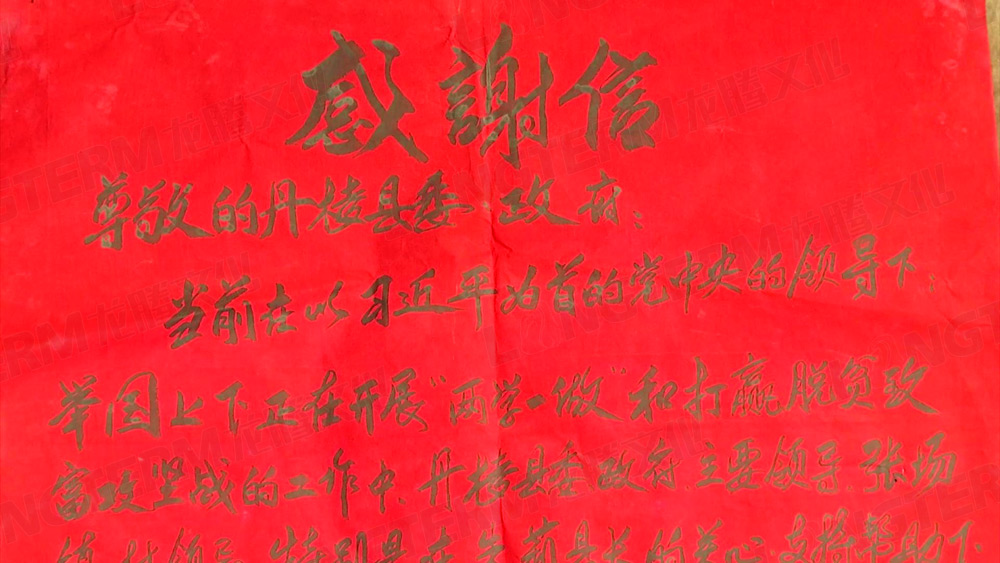 感謝信
尊敬的丹棱县委 政府:
当前在以习近平为首的党中央的领导下:
举国上下正在开展"两学一做"和打赢脱贫致
富攻坚战的工作中、丹棱县委政府、主要领导、张场
镇 领导、特别是在 县长的关心、支持帮助下
龙腾文化